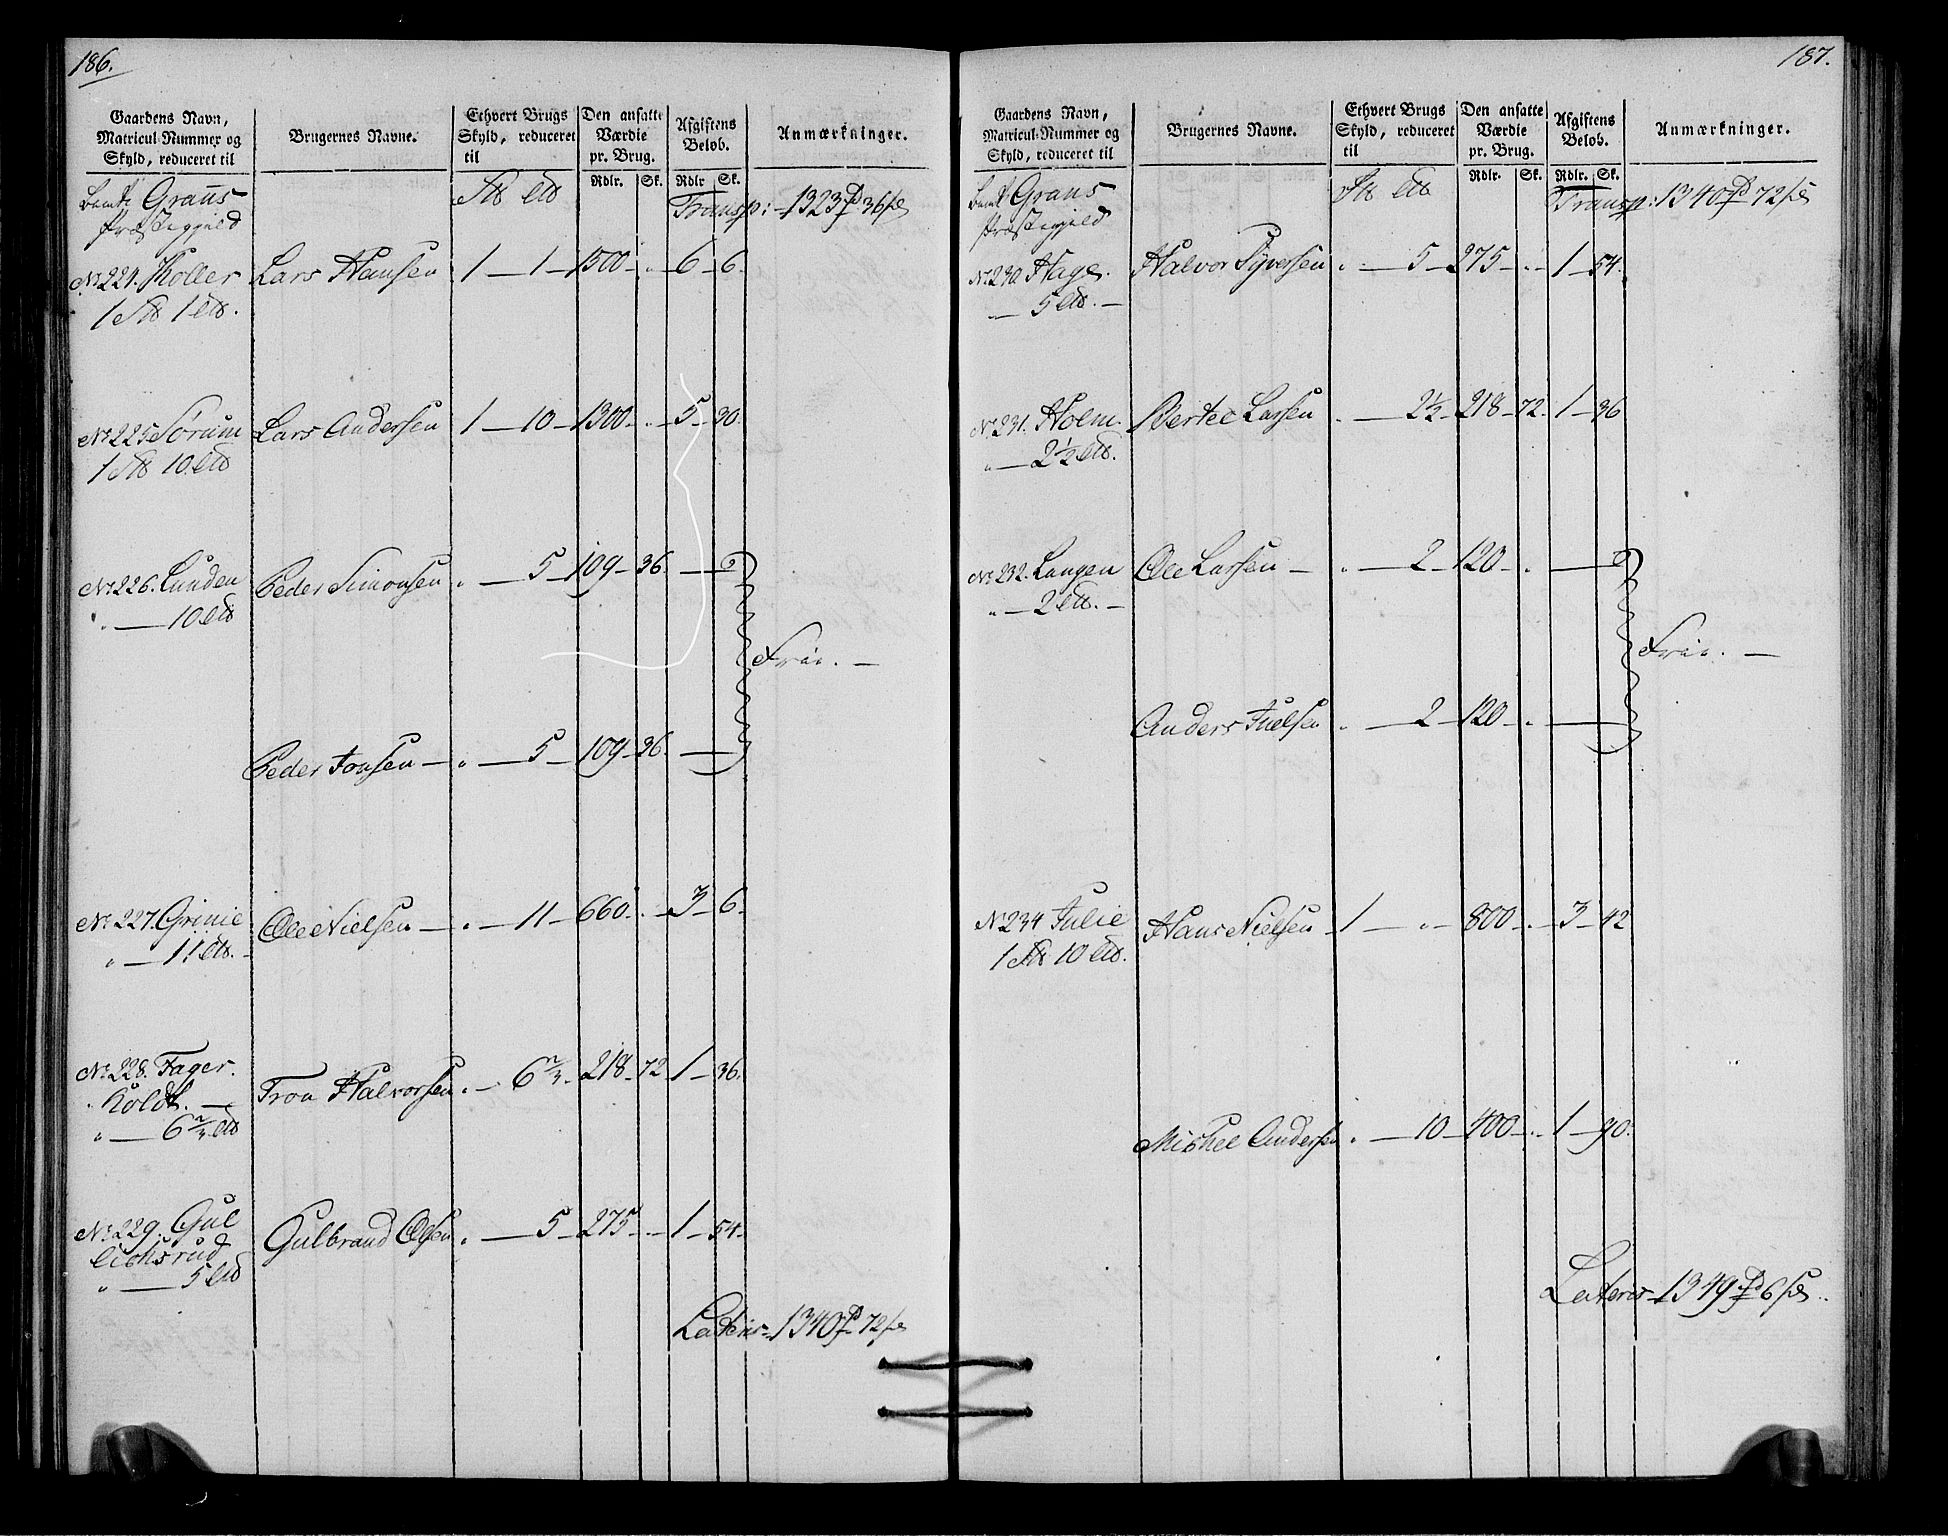 186.
Gaardens Navn, Matricul-Nummer og Skyld, reduceret til
Brugernes Navne.
Ethvert Brugs Skyld, reduceret til
Den ansatte Værdie pr. Brug.
Afgiftens Beløb.
Anmærkninger.
Rdlr. Sk. Rdlr Sk.
Grans
Præstegjeld
Transp: 1323 36
No 224. Koller Lars Hansen 1 — 1 — 1500 — " — 6 — 6.
1 1
No 225 Sørum Lars Andersen 1 — 10 — 1300 — " — 5 — 30.
1 10
No 226. Lunden Peder Simonsen " — 5 — 109 — 36.
" — 10
Frie. —
Peder Jonsen — " — 5 — 109 — 36.
No 227. Grinie Ole Nielsen — " — 11 — 660 — " — 3 — 6.
" — 11
No 228. Fager- Tron Halvorsen " — 6 2/3 — 218 — 72 1 — 36.
" — 6 2/3
No 229. Gul Gulbrand Olsen " — 5 — 275 — " — 1 — 54.
lichsrud
" — 5
Lateris — 1340 72
187.
Gaardens Navn, Matricul-Nummer og Skyld, reduceret til
Brugernes Navne.
Ethvert Brugs Skyld, reduceret til
Den ansatte Værdie pr. Brug.
Afgiftens Beløb.
Anmærkninger.
Rdlr. Sk. Rdlr. Sk.
Grans
Præstegjeld
Transp: 1340 72
No 230. Hage. Halvor Syversen " — 5 — 275 — " — 1 — 54.
— 5
No 231. Holm. Bertel Larsen " — 2½ — 218 — 72. 1 — 36
" — 2½
No 232. Langen Ole Larsen — " — 2 — 120 — "
" — 2
Frie. —
Anders Juelsen " — 2 — 120 — "
No 234 Julie Hans Nielsen — 1 — " — 800 — " — 3 — 42
1 10
Michel Andersen " — 10 — 400 — " — 1 — 90.
Lateris — 1349 6